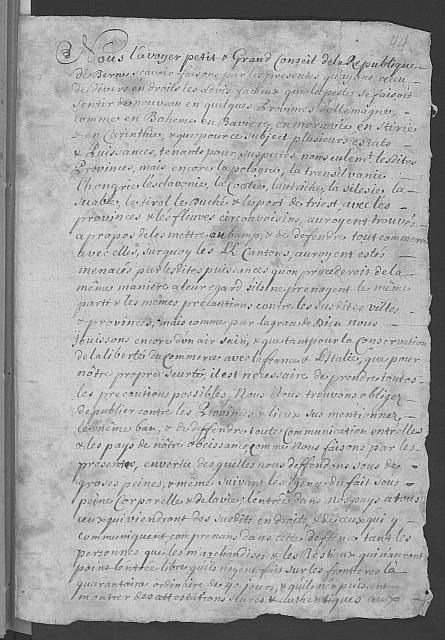 44
Nous l'avoyer petit & Grand Conseil de la Republique
de Berne scavoir faisons par les presentes qu'ayons receu
de divers endroits les advis facheux que la peste se faisoit
sentir de nouveau en quelques Provinces d'allemagne
comme en Boheme en Baviere en moravie en Stirie
& en Carinthie, & que pour ce subject plusieurs estats
& Puissances, tenants pour suspects, non seulemt. lesdites
Provinces, mais encore la pologne, la transilvanie
l'hongrie lesclavonie, la Croatie, lautriche, la silesie la
suabe, le tirol le Duché & le port de triest avec les
provinces & les fleuves circonvoisins, auroyent trouvés
a propos de les mettre au bamp, & de deffendre tout commerce
avec elles, surquoy les LL Cantons, auroyent estés
menacés par lesdites puissances qu'on procederoit de la
même maniere a leur egard s'ils ne prenoyent le même
parti & les mêmes precautions contre les susdites villes
& provinces, mais comme par la grace de Dieu nous
jouissons encore d'un air sain, & que tant pour la Conservation
de la liberté du Commerce avec la france & l'Italie, que pour
nôtre propre seurté, il est necessaire de prendre toutes
les precautions possibles, Nous Nous trouvons obligez
de publier contre les Provinces & lieux sus mentionnez
le même ban, & de deffendre toute Communication entr'elles
& les pays de nôtre obeissance comme Nous faisons par les
presentes, en vertu des quelles nous deffendons sous de
grosses peines, & même suivant l'exigence du fait sous
peine Corporelle & de la vie l'entrée dans nos pays a tous
ceux qui viendront des susdits endroits, & de ceux qui y
communiquent comprenans dans cette deffense tant les
personnes que les marchandises & les Bestiaux qui n'auront
point l'entrée libre qu'ils n'ayent fait sur les frontieres la
quarantaine ordinaire de 40 jours, & qu'ils ne puissent
montrer des attestations seures & authentiques aux